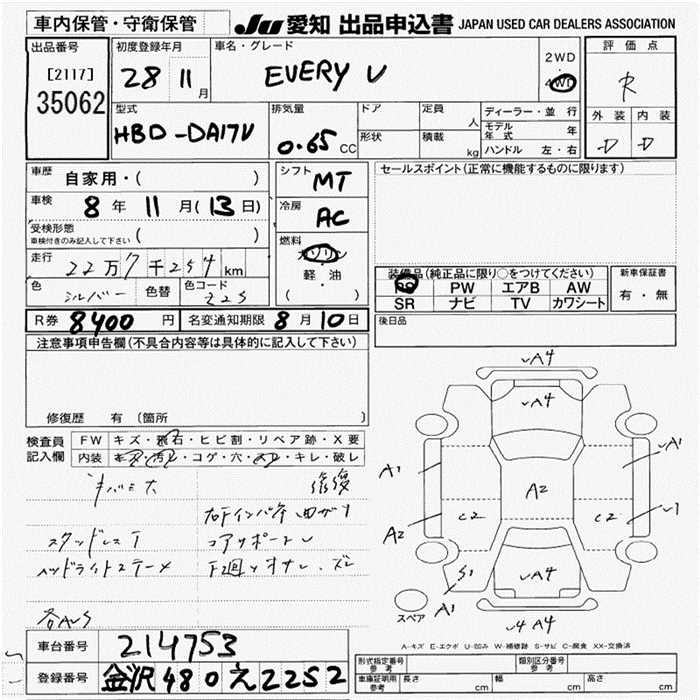 車内保管・守衛保管
JU 愛知 出品申込書 JAPAN USED CAR DEALERS ASSOCIATION
出品番号
[2117]
35062
初度登録年月
28 11 月
車名・グレード
EVERY V
2WD
4WD
評価点
R
外装 内装
D D
型式
HBD-DA17V
排気量
0.65 CC
ドア
形状
定員 人
積載 kg
ディーラー・並行
モデル年式 年
ハンドル 左・右
車歴
自家用・( )
車検
8年 11月(13日)
受検形態
車検付きのみ記入して下さい ( )
走行
22万7千254km
色
シルバー
色替
色コード
シフト
MT
冷房
AC
燃料
ガソリン
軽・油
( )
セールスポイント(正常に機能するものに限ります)
装備品(純正品に限り○をつけてください)
PS PW エアB AW
SR ナビ TV カワシート
新車保証書
有・無
後日品
R券 8400円
名変通知期限 8月10日
注意事項申告欄(不具合内容等は具体的に記入して下さい)
修復歴 有 [箇所 ]
検査員記入欄
FW キズ・飛石・ヒビ割・リペア跡・X要
内装 キズ・汚レ・コゲ・穴・スレ・キレ・破レ
修復
コアサポート
A4
A4
A1
A1
A2
A2
C2
C2
S1
A4
A1
A4 A4
スペア
A-キズ E-エクボ U-凹み W-補修跡 S-サビ C-腐食 XX-交換済
車台番号
214753
登録番号
金沢480え2252
形式指定番号 参考
類別区分番号 参考
車庫証明用 参考
長さ cm
幅 cm
高さ cm